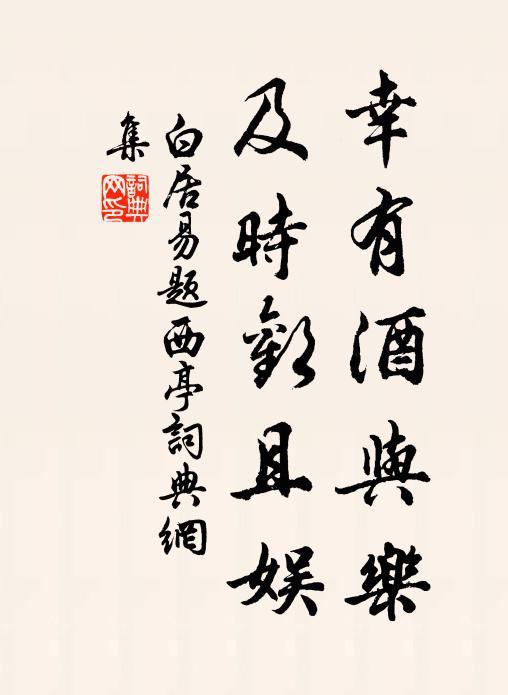 幸有酒與樂
及時歡且娛
白居易題西亭詞典網
集
詞典網印